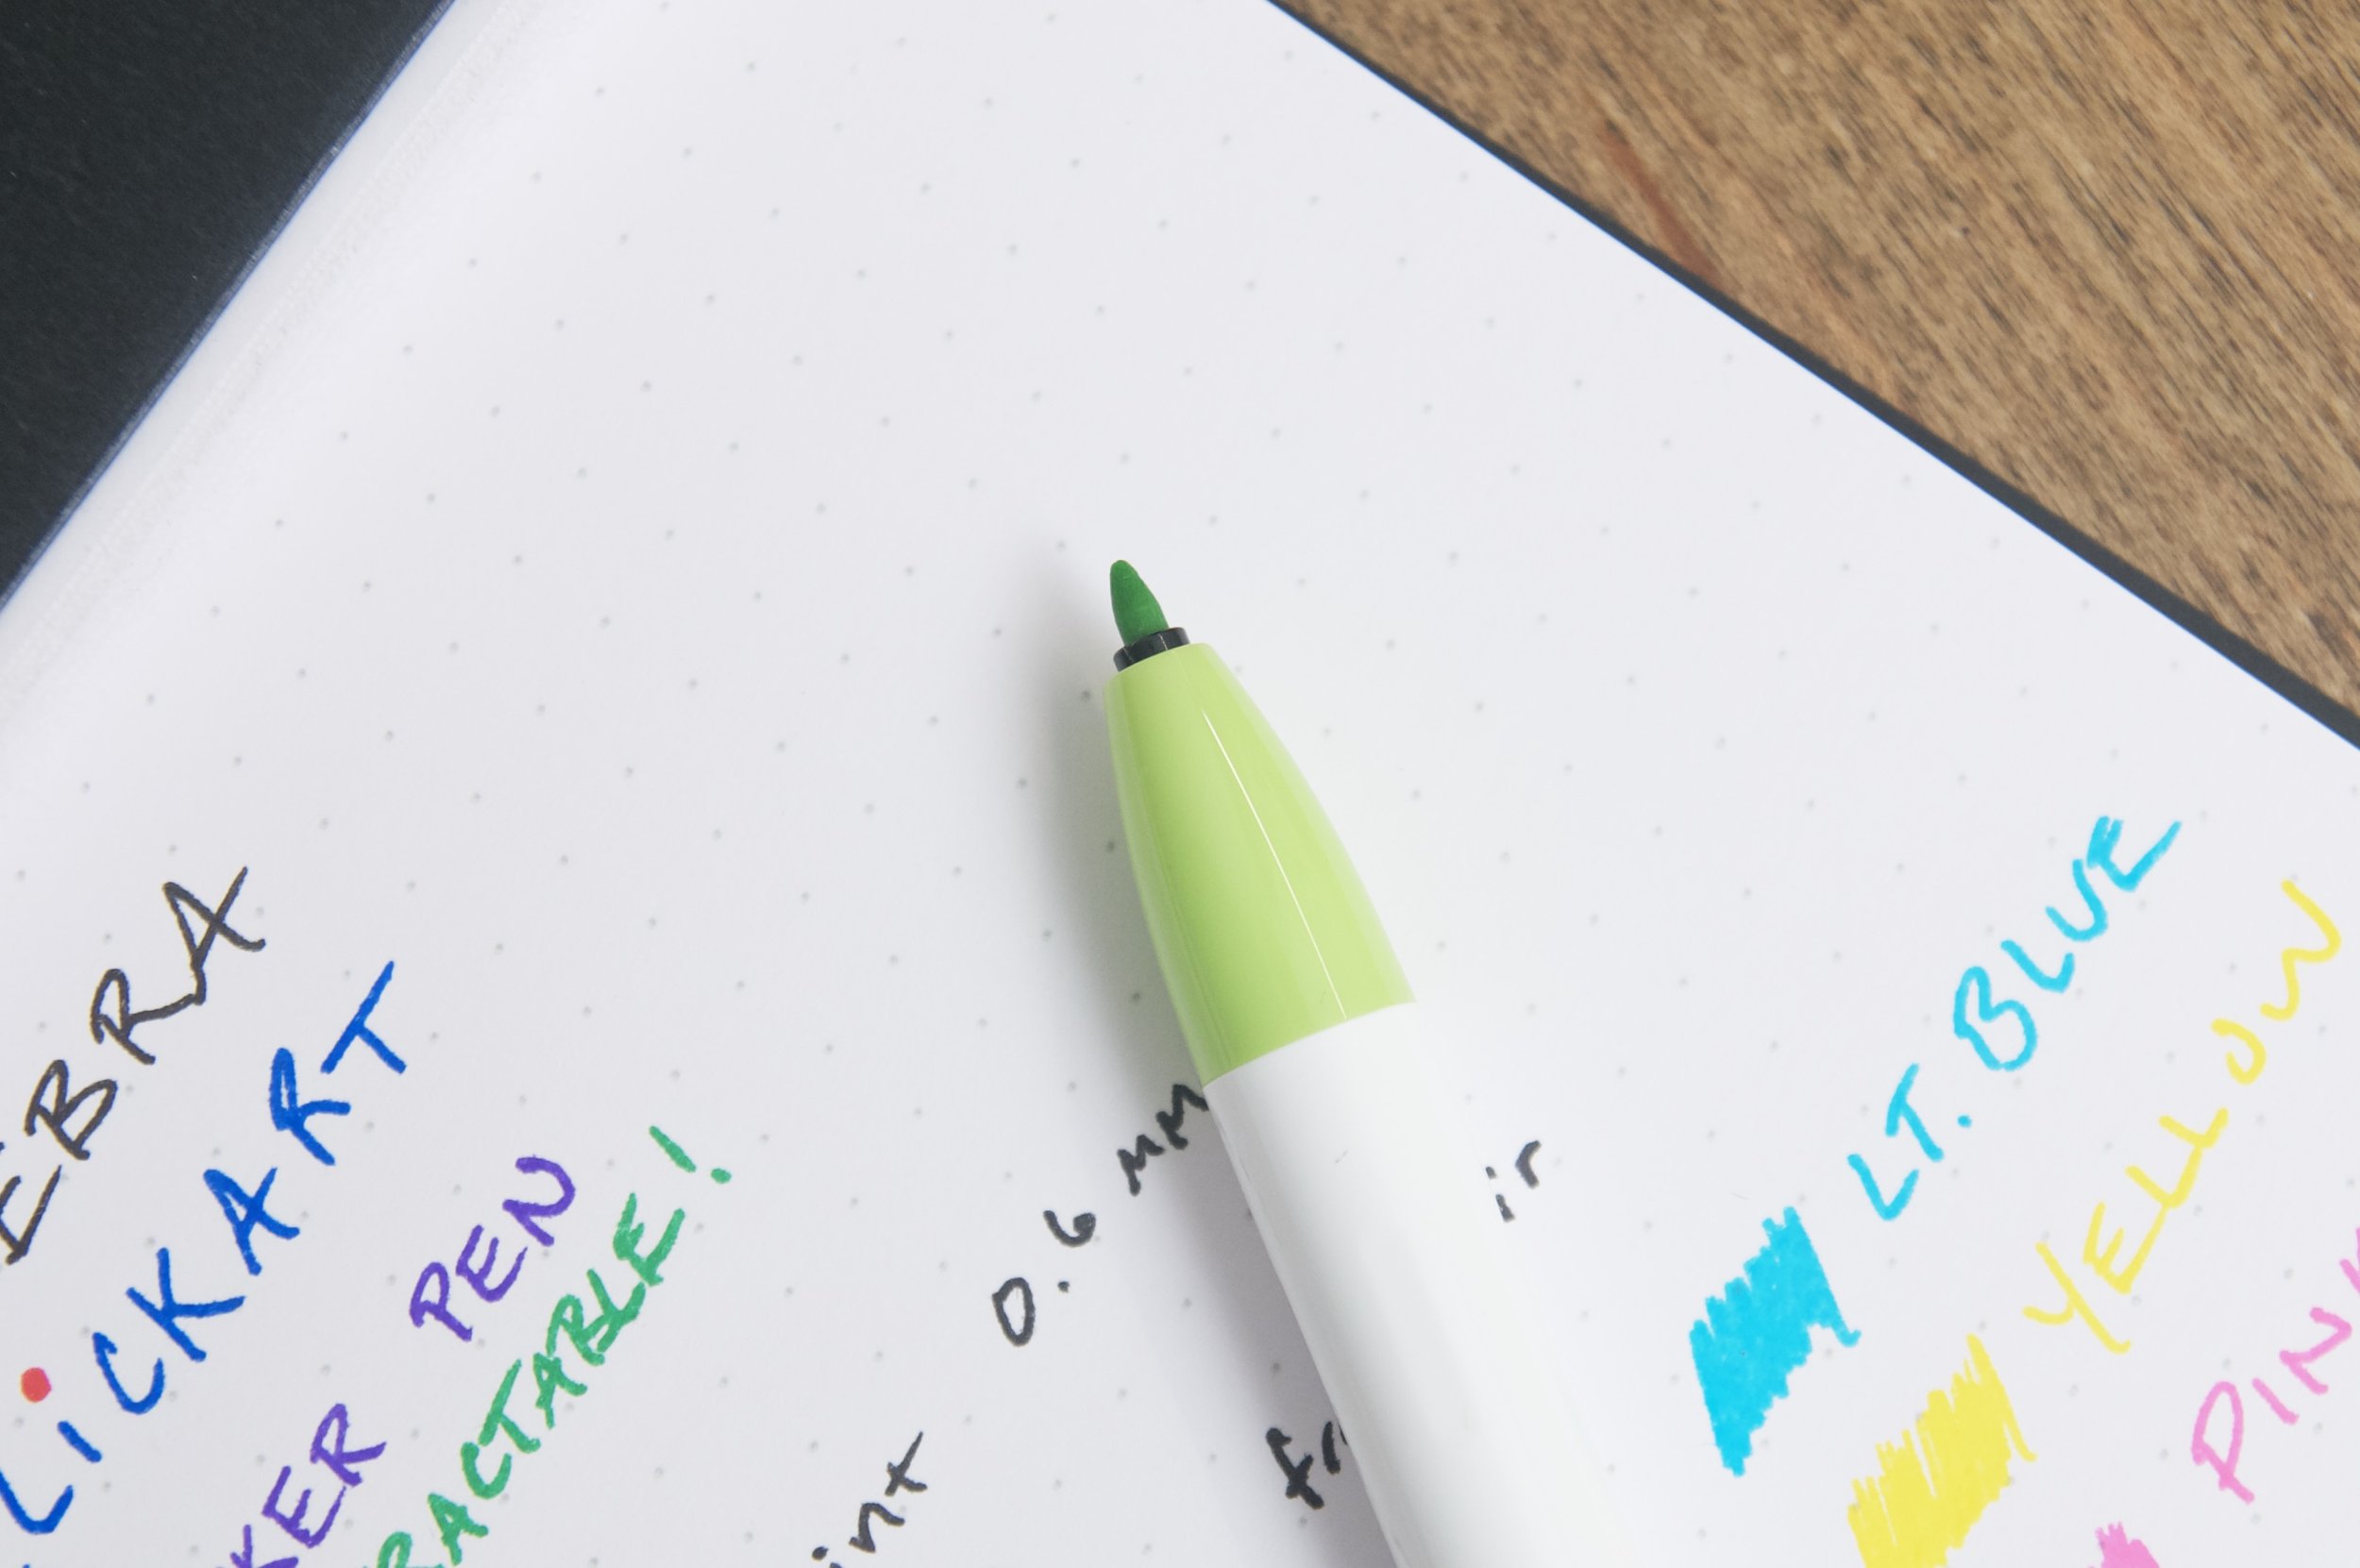 EBRA
LiCKART
KER PEN
RACTABLE!
0.6 MM
int
ir
fr
LT. BLUE
YELLOW
PIN